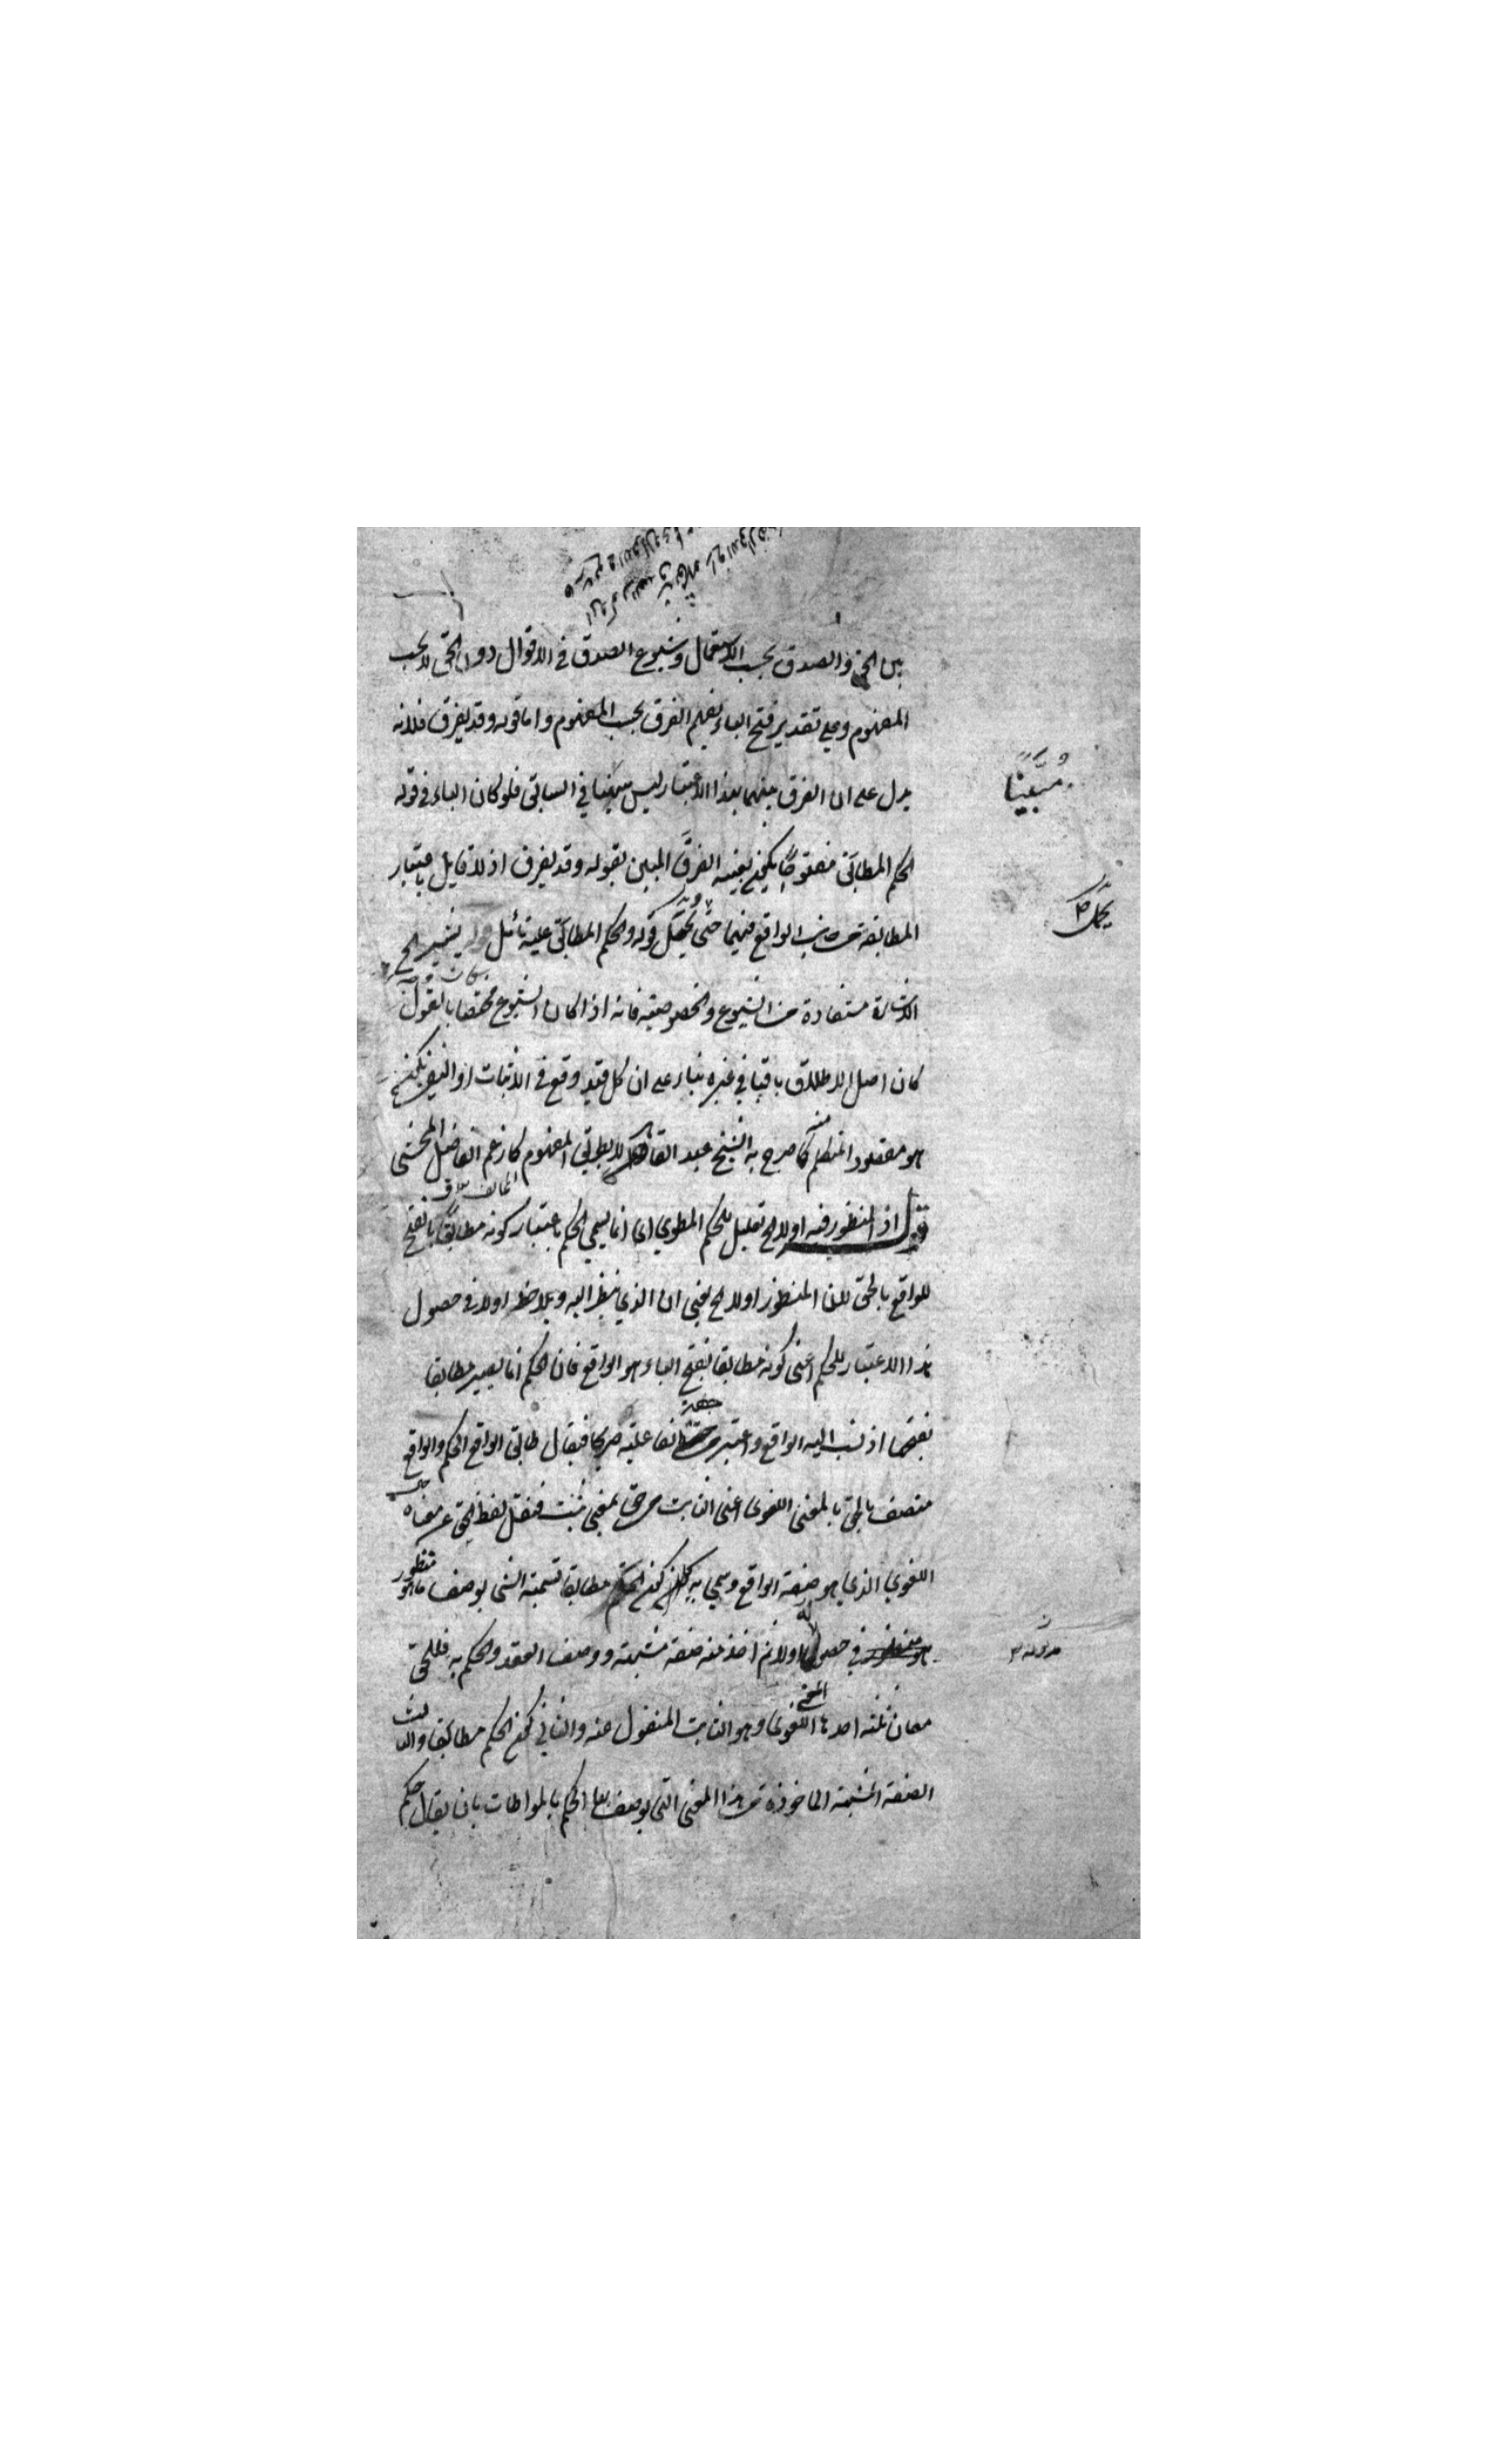 بين الحق والصدق بحسب الاستعمال وشيوع الصدق في الاقوال دون الحق لا بحسب
المفهوم وعلى تقدير فتح الباء يفهم الفرق بحسب المفهوم واما قوله وقد يفرق فلانه
يدل على ان الفرق بينهما بهذا الاعتبار ليس مبينا في السابق فلو كان الباء في قوله
مُبَيَّنًا
الحكم المطابق مفتوحا يكون بعينه الفرق المبين بقوله وقد يفرق اذ لا قايل باعتبار
المطابقة من جانب الواقع فيهما حتى يحمل قوله والحكم المطابق عليه تأمل قوله يشير الخ
يحمل
الاشارة مستفادة من الشيوع والخصوصية فانه اذا كان الشيوع مختصا بالقول
كان اصل الاطلاق باقيا في غيره بناء على ان كل قيد وقع في الاثبات او النفي يكون
هو مقصود المتكلم كما صرح به الشيخ عبد القاهر لا بطريق المفهوم كما زعم الفاضل المحشي
قوله اذ المنظور فيه اولا الخ تعليل للحكم المطوي اي انما يسمي الحكم باعتبار كونه مطابقا بالفتح
للواقع بالحق لان المنظور اولا الخ يعني ان الذي ينظر اليه ويلاحظ اولا في حصول
هذا الاعتبار للحكم اعني كونه مطابقا بفتح الباء هو الواقع فان الحكم انما يصير مطابقا
بفتحها اذ نسب اليه الواقع واعتبر جهة فاعليته صريحا فيقال طابق الواقع الحكم والواقع
متصف بالحق بالمعنى اللغوي اعني الثابت من حق بمعنى ثبت فنقل لفظ الحق عن معناه
اللغوي الذي هو صفة الواقع وسمي به كون الحكم مطابقا تسمية الشئ بوصف ما هو منظور
في حصوله اولا ثم اخذ منه صفة مشبهة ووصف العقد والحكم به فللحق
معان ثلثة احدها المعنى اللغوي وهو الثابت المنقول عنه والثاني كون الحكم مطابقا والثالث
الصفة المشبهة الماخوذة من هذا المعنى التي يوصف بها الحكم بالمواطات بان يقال حكم